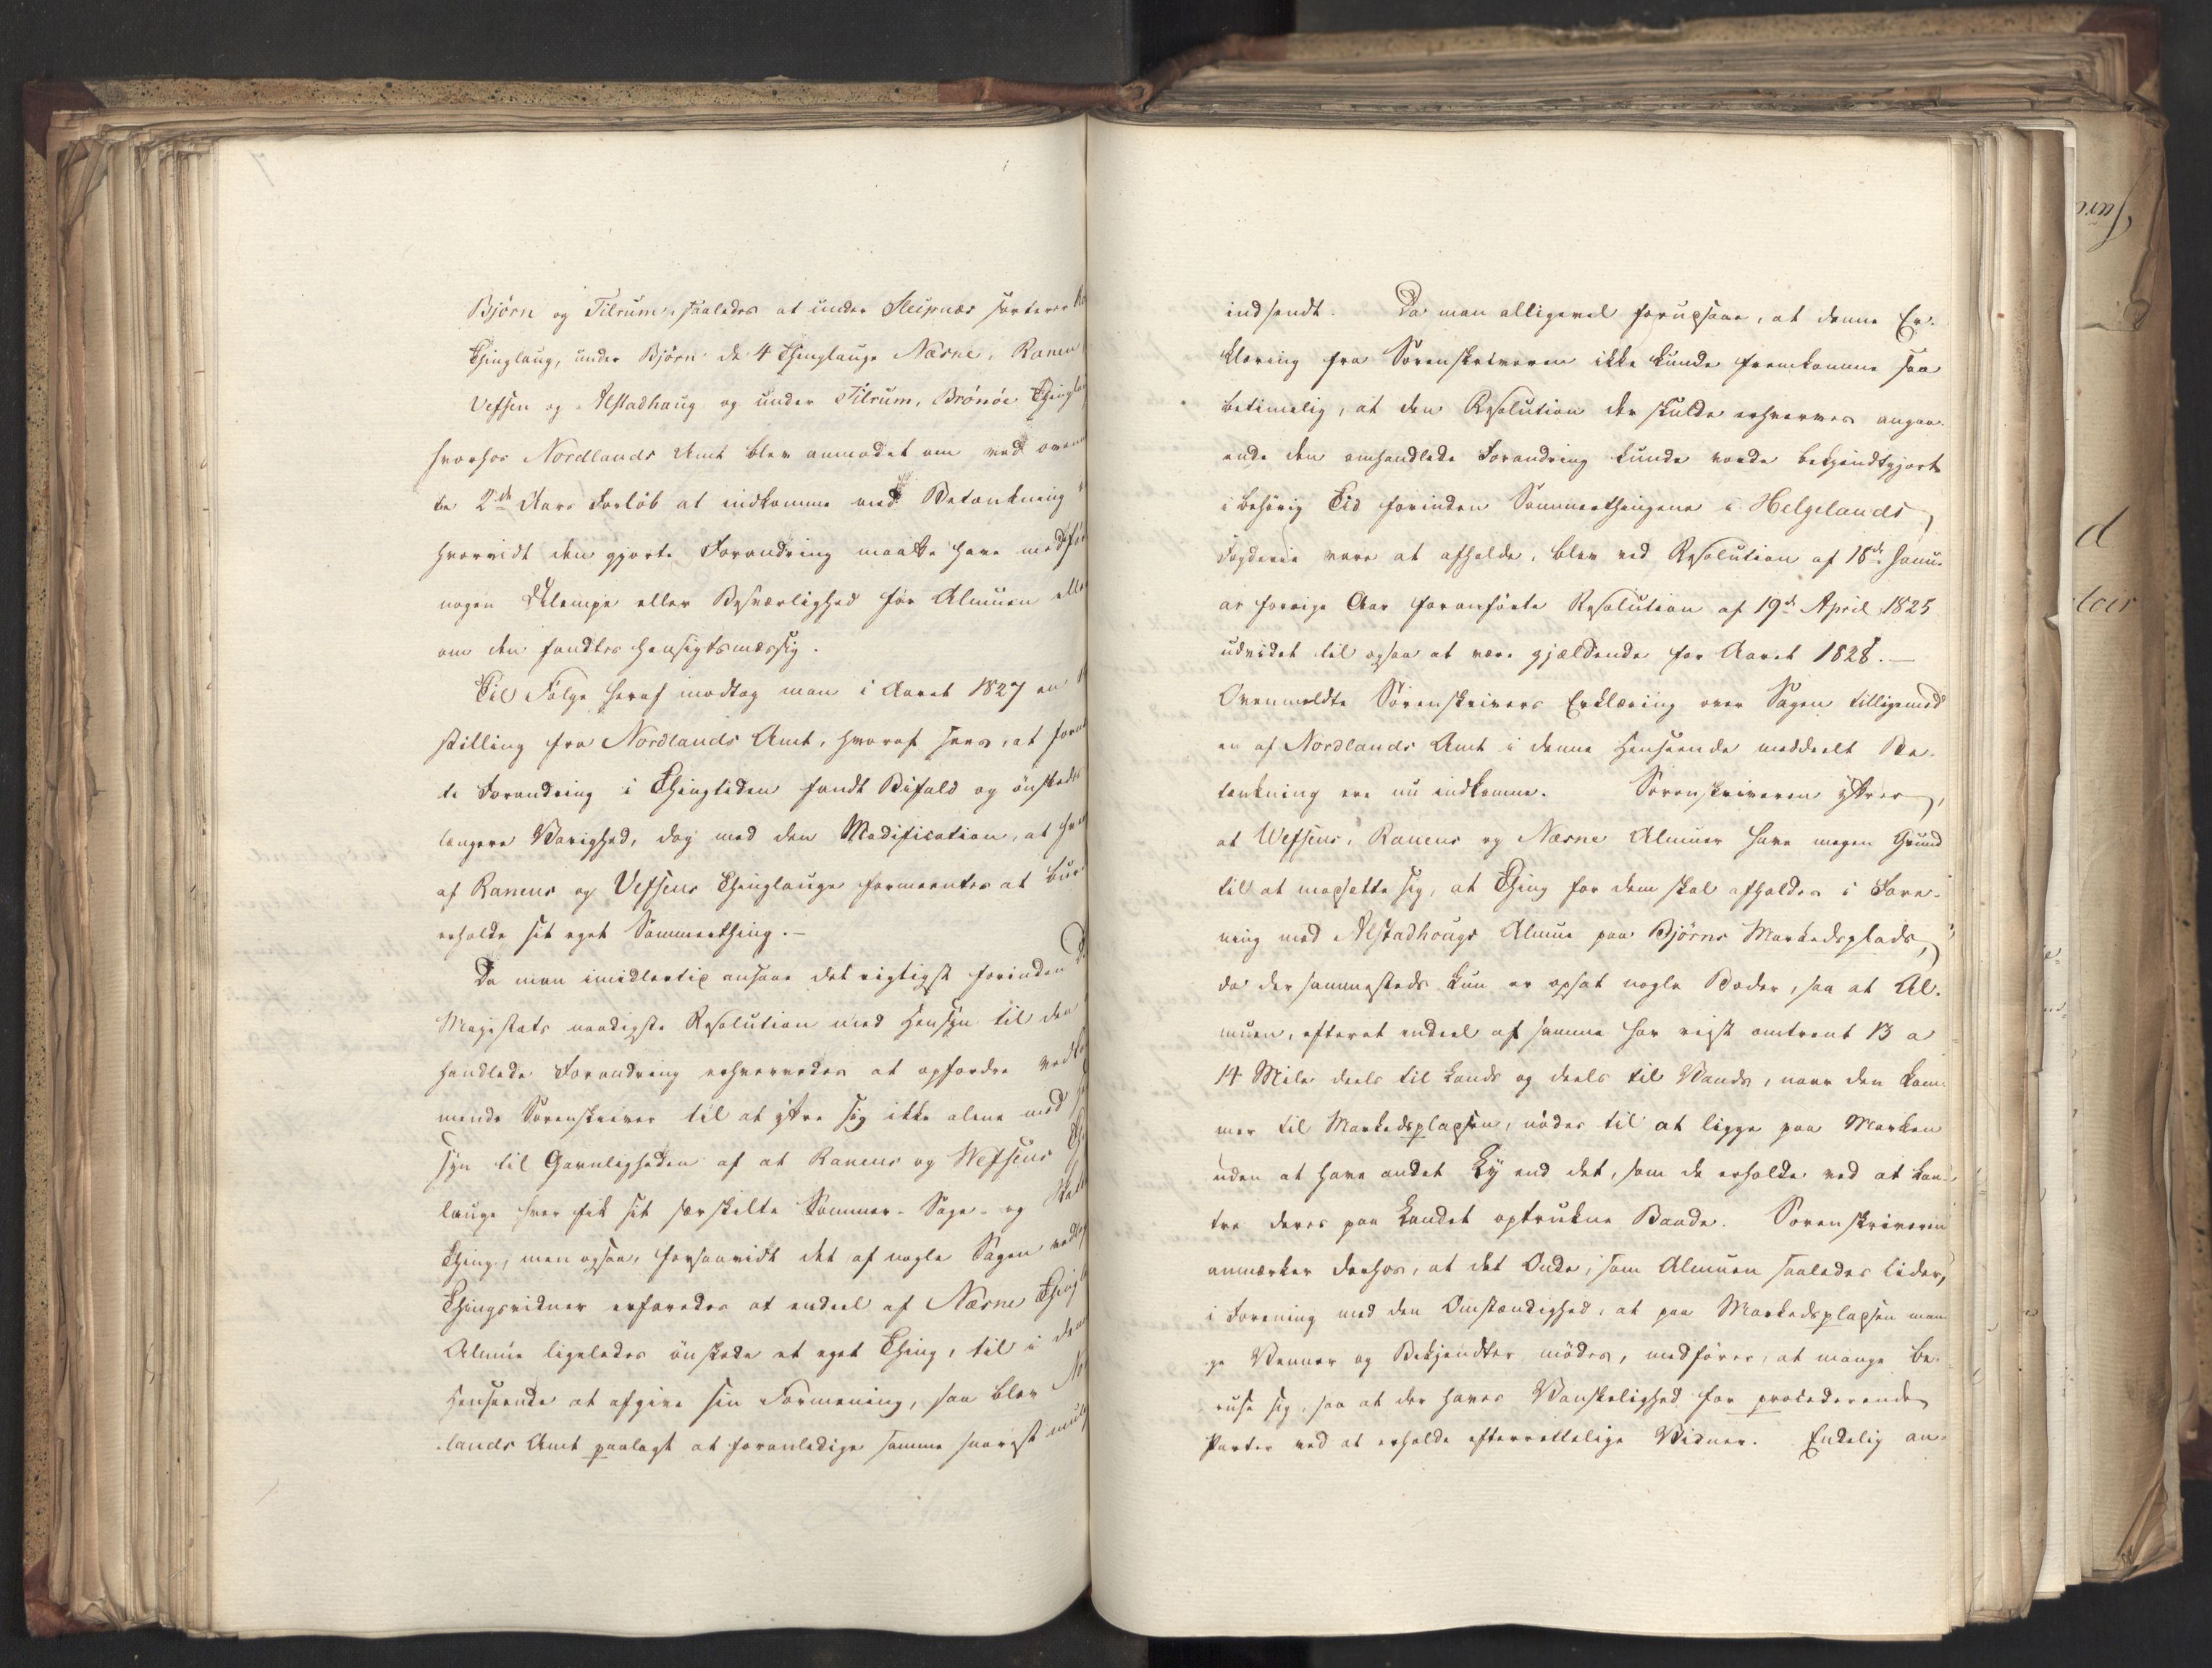 Björn og Tilrum, saaledes at under Sleipnæs sorterer
Thinglaug, under Björn de 4 Thinglauge Næsne, Ranen
Vefsen og Alstadhaug og under Tilrum, Brönöe Thingla
hvorhos Nordlands Amt blev anmodet om ved oven
te 2de Aars Forløb at indkomme med Betænkning
hvorvidt den gjorte Forandring maatte have medfø
nogen Ulempe eller Besværlighed for Almuen elle
om den fandtes hensigtsmæssig.
Til Følge heraf modtog man i Aaret 1827 en
stilling fra Nordlands Amt, hvoraf saaes, at foran
te Forandring i Thingtiden fandt Bifald og ønskedes
længere Varighed, dog med den Modification, at hver
af Ranens og Vefsens Thinglauge formeentes at bur
erholde sit eget Sommerthing.–
Da man imidlertid ansaae det rigtigst forinden D
Majestæts naadigste Resolution med Hensyn til den
handlede Forandring erhvervedes at opfordre vedk
mende Sorenskriver til at yttre sig ikke alene med
syn til Gavnligheden af at Ranens og Wefsens Th
lauge hver fik sit særskilte Sommer- Sage- og Skatt
Thing, men ogsaa, forsaavidt det af nogle Sagen vedl
Thingsvidner erfaredes at endeel af Næsne Thingl
Almue ligeledes ønskede et eget Thing, til i den
Henseende at afgive sin Formening, saa blev No
lands Amt paalagt at foranledige samme snarest mul
indsendt. Da man alligevel forudsaae, at denne Er-
klæring fra Sorenskriveren ikke kunde fremkomme saa
betimelig, at den Resolution der skulde erhverves angaa-
ende den omhandlede Forandring kunde vorde bekjendtgjort
i behørig Tid forinden Sommerthingene i Helgelands
Fogderie vare at afholde, blev ved Resolution af 18de Janu-
ar forrige Aar foranførte Resolution af 19de April 1825
udvidet til ogsaa at være gjældende for Aaret 1828.–
Ovenmeldte Sorenskrivers Erklæring over Sagen tilligemed
en af Nordlands Amt i denne Henseende meddeelt Be-
tænkning ere nu indkomne. Sorenskriveren yttrer,
at Wefsens, Ranens og Næsne Almuer have megen Grund
til at modsætte sig, at Thing for dem skal afholdes i Fore-
ning med Alstadhougs Almue paa Björns Markedsplads,
da der sammesteds kun er opsat nogle Boder, saa at Al-
muen, efterat endeel af samme har reist omtrent 13 a
14 Mile deels til Lands og deels til Vands, naar den kom-
mer til Markedspladsen, nødes til at ligge paa Marken
uden at have andet Ly end det, som de erholde ved at kan-
tre deres paa Landet optrukne Baade. Sorenskriveren
anmærker derhos, at det Onde, som Almuen saaledes lider,
i Forening med den Omstændighed, at paa Markedspladsen man-
ge Venner og Bekjendter mødes, medfører, at mange be-
ruse sig, saa at der haves Vanskelighed for procederende
Parter ved at erholde efterrettelige Vidner. Endelig an-